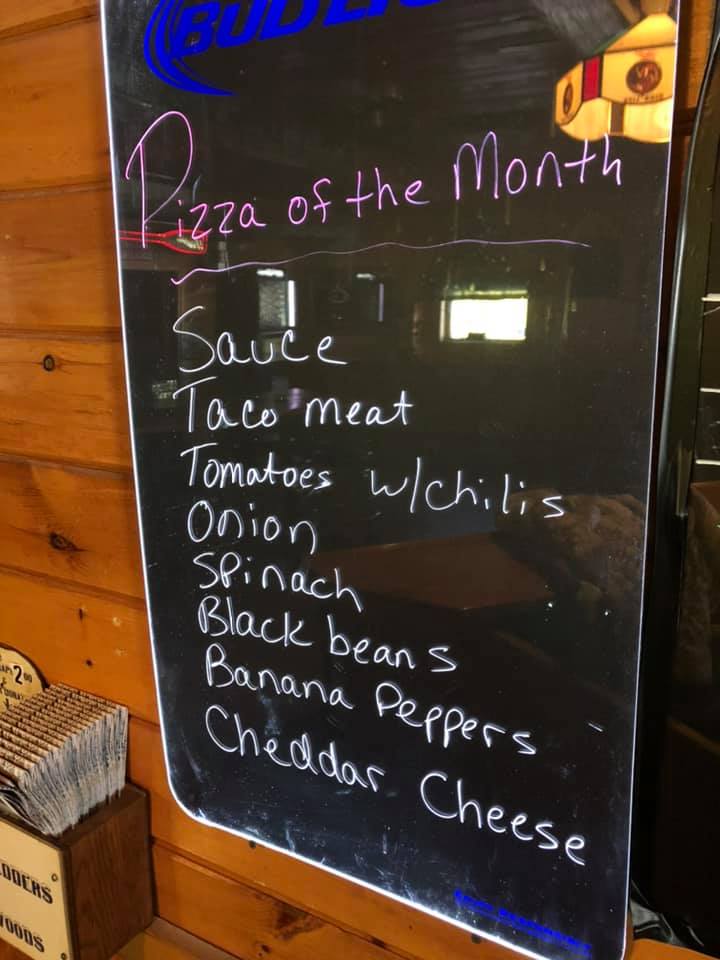 BUD LIG
Pizza of the Month
Sauce
Taco meat
Tomatoes w/chilis
Onion
Spinach
Black beans
Banana Peppers
Cheddar Cheese
2 00
ODDERS
WOODS